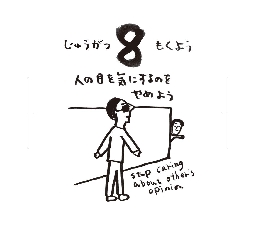 じゅうがつ 8 もくよう
人の目を気にするのを
やめよう
stop caring
about other's
opinion